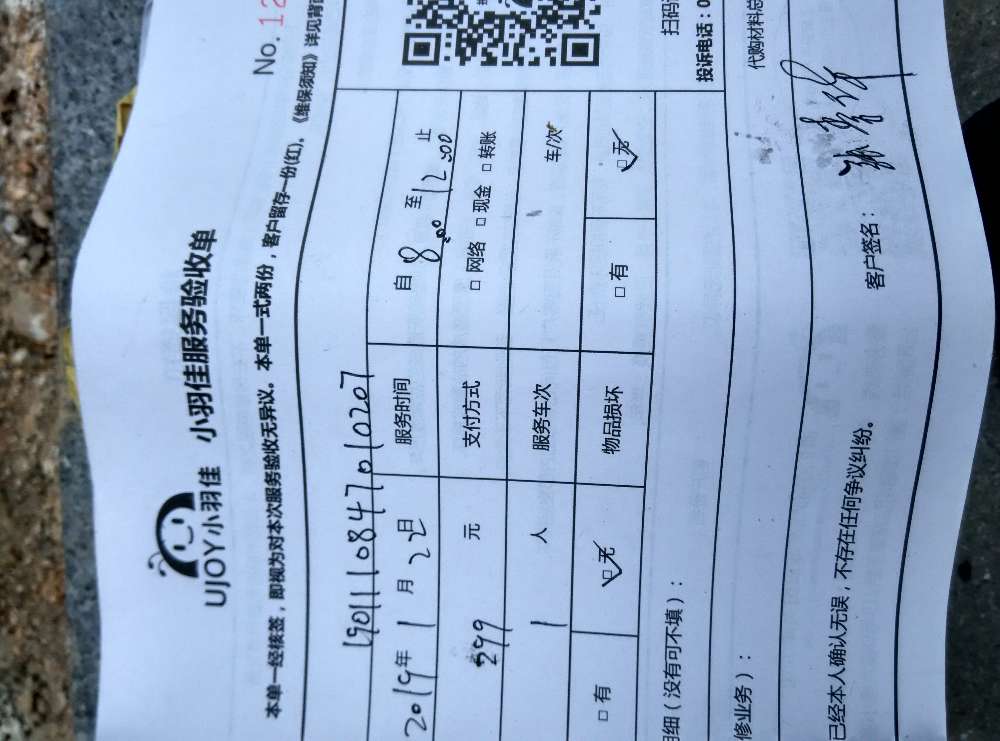 UJOY小羽佳 小羽佳服务验收单
No. 12
本单一经核签，即视为对本次服务验收无异议。本单一式两份，客户留存一份(红)，《维保须知》详见背面
19011108470102 07
2019年 1 月 22日 服务时间 自 8:00 至 12:00 止
299 元 支付方式 □ 网络 □ 现金 □ 转账
1 人 服务车次 1 车/次
□ 有 □ 无 物品损坏 □ 有 □ 无
明细（没有可不填）： 扫码
投诉电话：0
修业务）： 代购材料总
已经本人确认无误，不存在任何争议纠纷。 客户签名：